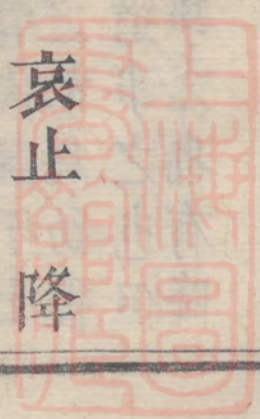 哀止　降
上海圖
書館藏